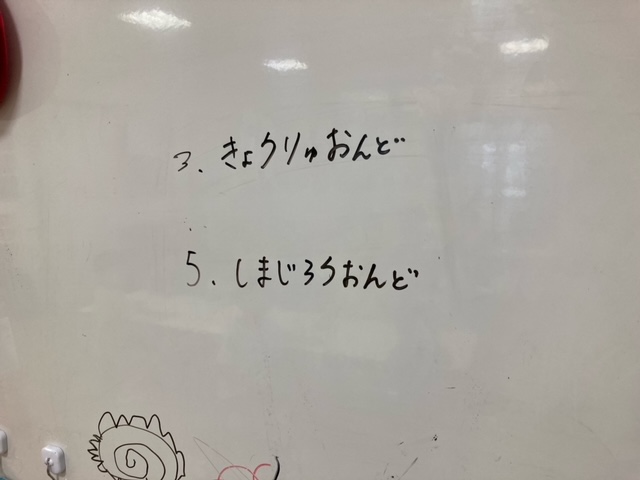 3. きょうりゅおんど
5. しまじろうおんど